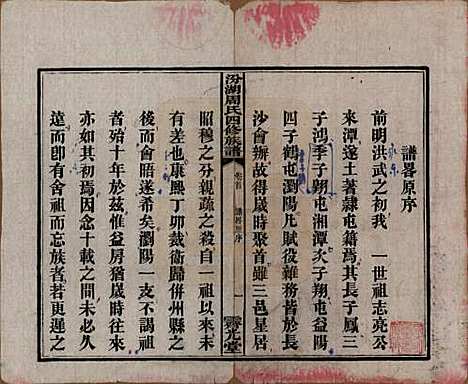 譜畧原序
前明洪武之初我　一世祖志亮公
來潭遂土著隸屯籍爲其長子鳳三
子鴻季子翔屯湘潭次子翔屯益陽
四子鶴屯瀏陽凡賦役雜務皆於長
沙會辦故得歲時聚首雖三邑星居
汾湖周氏四修族譜
卷首
譜畧原序
一
昭穆之分親疏之殺自一祖以來未
有差也康熙丁卯裁衛歸併州縣之
後而會晤遂希矣瀏陽一支不謁祖
殆十年於兹惟益房猶歲時往來時
亦如其初焉因念十載之間未必久
遠而卽有舍祖而忘族者若更遲之